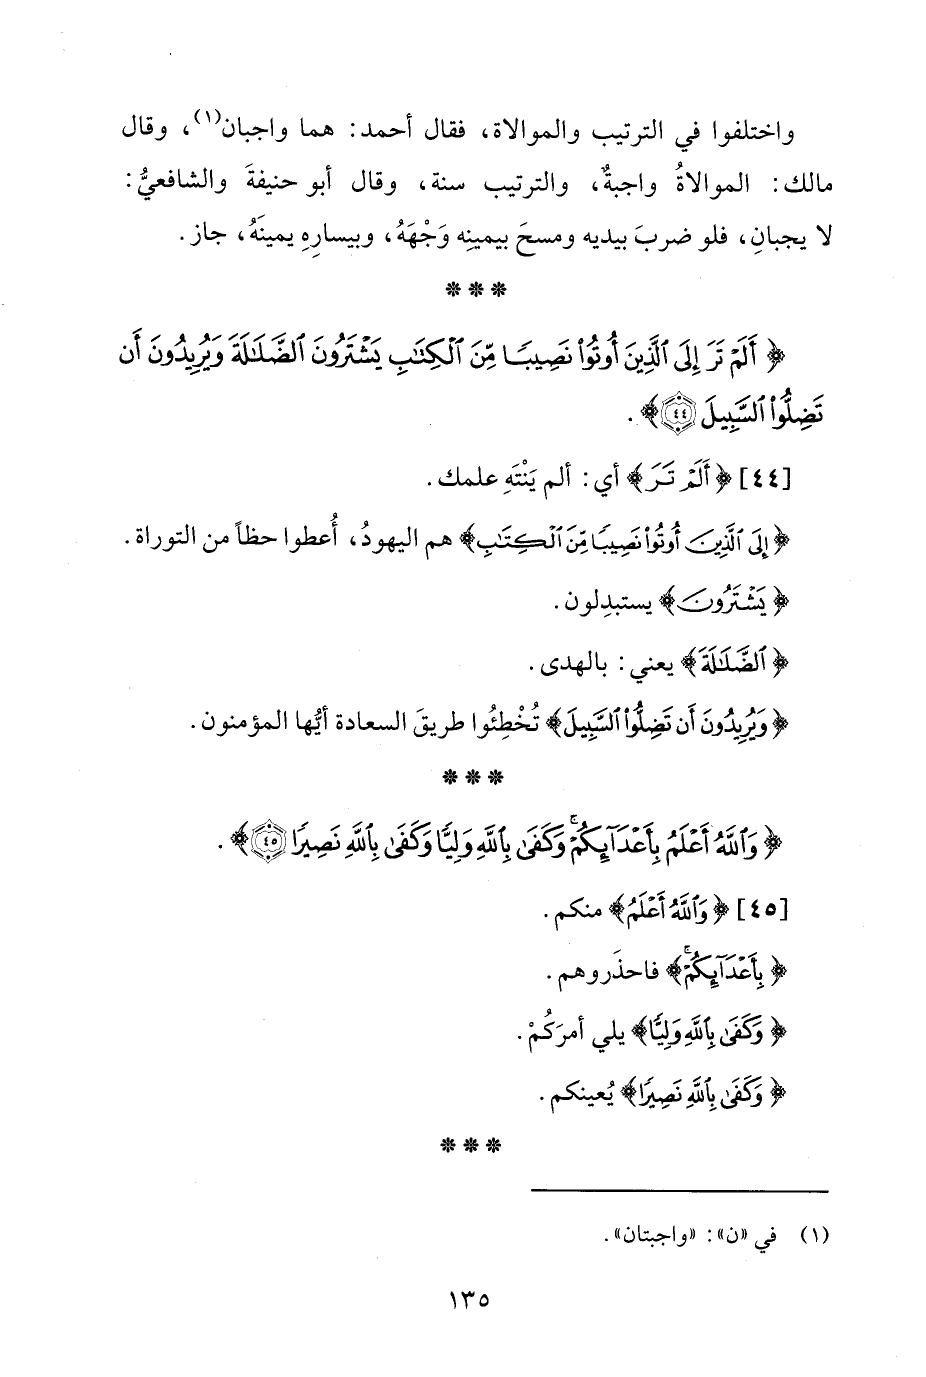 واختلفوا في الترتيب والموالاة، فقال أحمد: هما واجبان(١)، وقال
مالك: الموالاةُ واجبةٌ، والترتيب سنة، وقال أبو حنيفةَ والشافعيُّ:
لا يجبانِ، فلو ضربَ بيديه ومسحَ بيمينِه وَجْهَهُ، وبيسارِهِ يمينَهُ، جاز.
* * *
﴿ أَلَمْ تَرَ إِلَى ٱلَّذِينَ أُوتُوا۟ نَصِيبًا مِّنَ ٱلْكِتَـٰبِ يَشْتَرُونَ ٱلضَّلَـٰلَةَ وَيُرِيدُونَ أَن
تَضِلُّوا۟ ٱلسَّبِيلَ ٤٤﴾.
[٤٤] ﴿ أَلَمْ تَرَ﴾ أي: ألم يَنْتَهِ علمك.
﴿ إِلَى ٱلَّذِينَ أُوتُوا۟ نَصِيبًا مِّنَ ٱلْكِتَـٰبِ﴾ هم اليهودُ، أُعطوا حظاً من التوراة.
﴿ يَشْتَرُونَ﴾ يستبدِلون.
﴿ ٱلضَّلَـٰلَةَ﴾ يعني: بالهدى.
﴿ وَيُرِيدُونَ أَن تَضِلُّوا۟ ٱلسَّبِيلَ﴾ تُخْطِئُوا طريقَ السعادة أيُّها المؤمنون.
* * *
﴿ وَٱللَّهُ أَعْلَمُ بِأَعْدَآئِكُمْ ۚ وَكَفَىٰ بِٱللَّهِ وَلِيًّا وَكَفَىٰ بِٱللَّهِ نَصِيرًا ٤٥﴾.
[٤٥] ﴿ وَٱللَّهُ أَعْلَمُ﴾ منكم.
﴿ بِأَعْدَآئِكُمْ ۚ﴾ فاحذَروهم.
﴿ وَكَفَىٰ بِٱللَّهِ وَلِيًّا﴾ يلي أمرَكُمْ.
﴿ وَكَفَىٰ بِٱللَّهِ نَصِيرًا﴾ يُعينكم.
* * *
(١) في «ن»: «واجبتان».
١٣٥